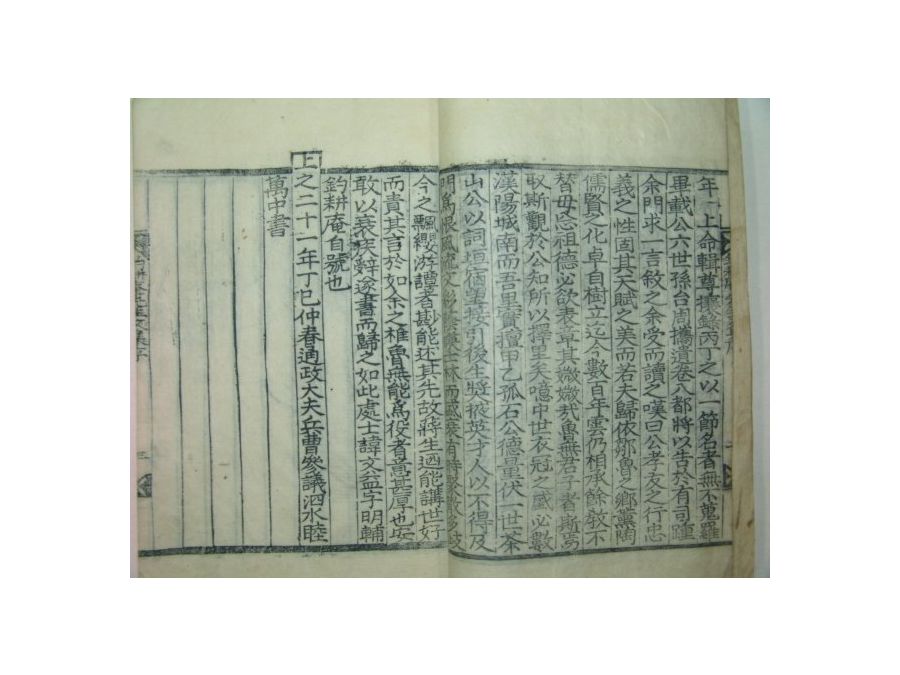 年 上命輯尊攘錄丙丁之以一節名者無不蒐羅
畢載公六世孫台周攜遺卷入都將以告於有司踵
余門求一言敘之余受而讀之嘆曰公孝友之行忠
義之性固其天賦之美而若夫歸依鄒魯之鄉薰陶
儒賢之化卓自樹立迄今數百年雲仍相承餘教不
替毋忝祖德必欲表章其媺哉魯無君子者斯焉
取斯觀於公知所以擇里矣噫中世衣冠之盛必數
漢陽城南而吾里實擅甲乙孤石公德量伏一世茶
山公以詞垣宿望接引後生奬掖英才人以不得及
門爲恨風流文 士林而盛衰有時
今之飄纓游譚者尠能述其先故將生迺能講世好
而責其言於如余之椎魯無能爲役者意甚厚也安
敢以衰疾辭遂書而歸之如此處士諱文益字明輔
釣耕庵自號也
上之二十一年丁巳仲春通政大夫兵曹參議泗水睦
萬中書